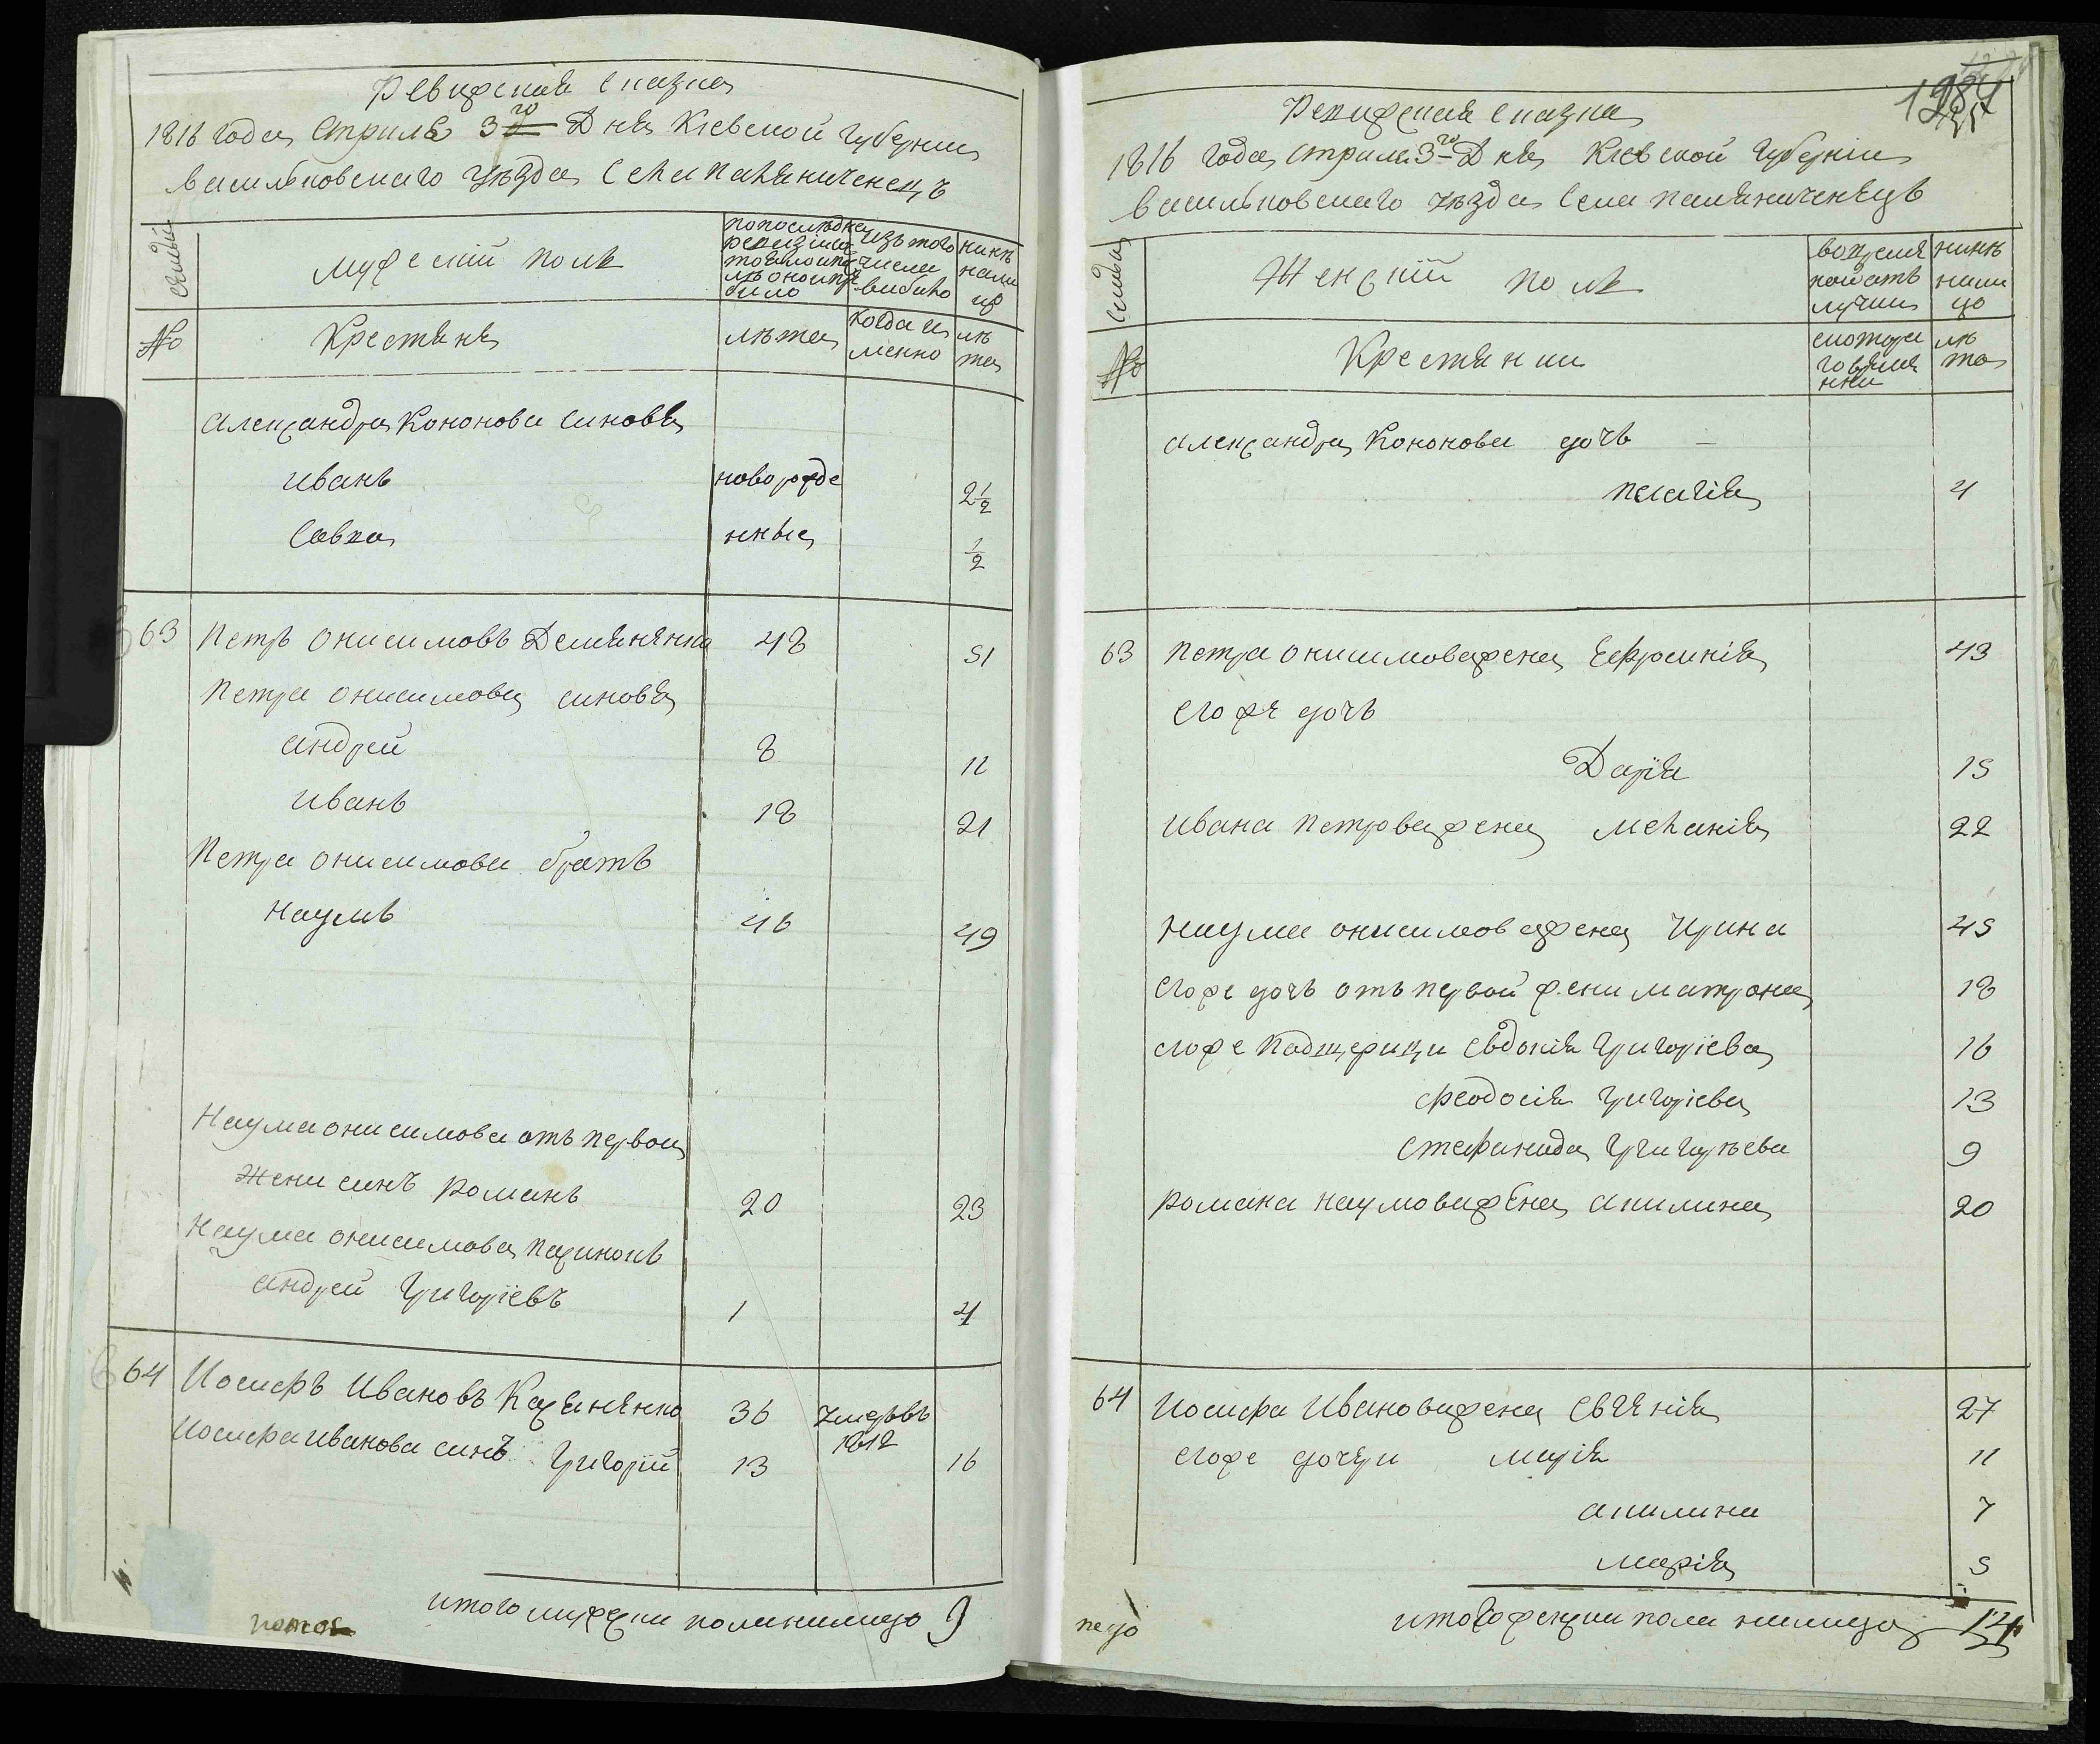 Ревизская Сказка
1816 года Априля 3го Дня Кіевской Губерніи
Васильковскаго уѣзда Села Паляниченецъ
семьи
Мужескій полъ
изъ того числа выбыло
нинѣ на лицо
№
Крестьяне
лѣта
когда именно
лѣта
Александра Кононова синовья
Иванъ новорожде 2 1/2
Савка нные 1/2
63 Петръ Онисимовъ Демяненко 48 51
Петра Онисимова синовья
Андрей 8 11
Иванъ 18 21
Петра Онисимова братъ
Наумъ 46 49
Наума Онисимова отъ первой
жени синъ Романъ 20 23
Наума Онисимова пасинокъ
Андрей Григоріевъ 1 4
64 Иосифъ Ивановъ 36 умеръвъ 1812
Иосифа Иванова синъ Григорій 13 16
итого мужески пола налицо 9
Ревизская Сказка
1816 года Априля 3го Дня Кіевской Губерніи
Васильковскаго уѣзда Села Паляниченецъ
семьи
Женскій полъ
нинѣ на лицо
№
Крестянки
лѣта
Александра Кононова дочь
Пелагія 4
63 Петра Онисимова жена Ефросинія 43
егоже дочь
Дарія 15
Ивана Петрова жена Меланія 22
Наума Онисимова жена Ирина 45
егоже дочь отъ первой жени Матрона 18
егоже падщерици Евдокія Григоріева 16
Феодосія Григоріева 13
Стефанида Григорьева 9
Романа Наумова жена Акилина 20
64 Иосифа Иванова жена Евгенія 27
егоже дочери Марія 11
Акилина 7
Марія 5
итого женски пола налицо 14